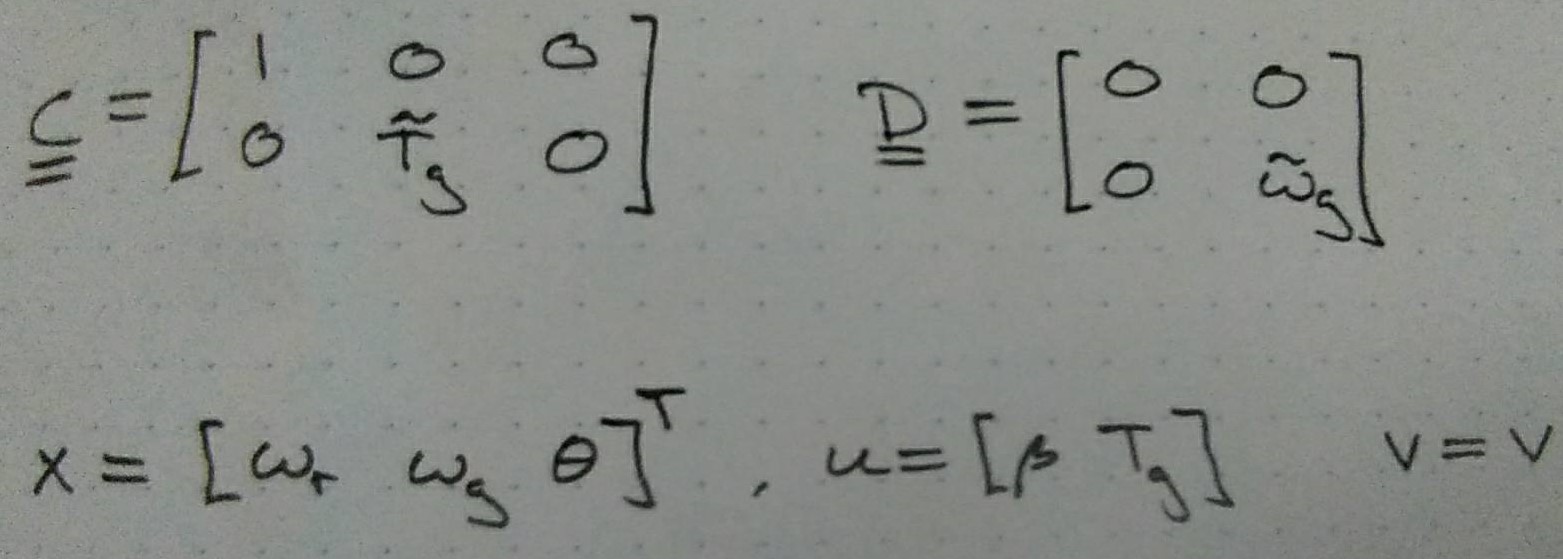 C = [ 1 0 0 ; 0 T̃_g 0 ] D = [ 0 0 ; 0 ω̃_g ]
x = [ω_r ω_g θ]^T , u = [β T_g] v = v